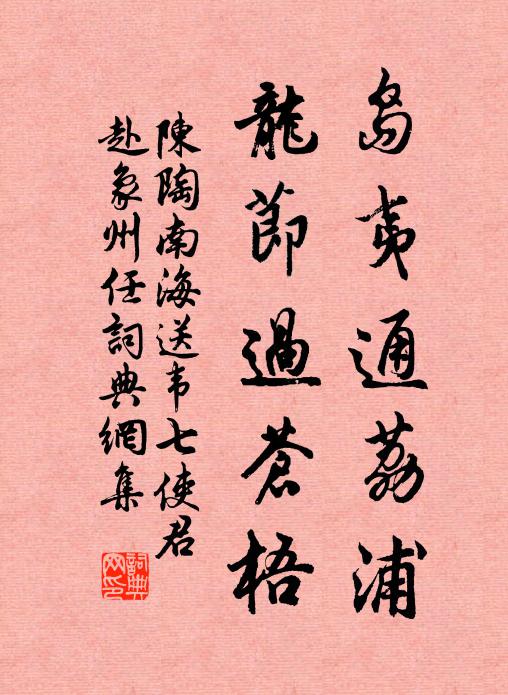 島夷通荔浦
龍節過蒼梧
陳陶南海送韦七使君
赴象州任詞典網集
詞典网印